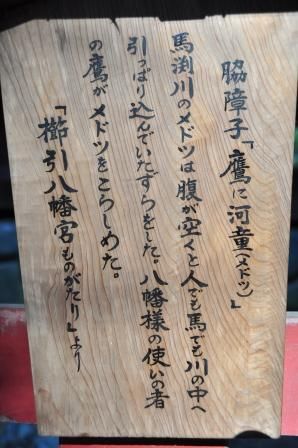 脇障子「鷹に河童(メドツ)」
馬渕川のメドツは腹が空くと人でも馬でも川の中へ
引っぱり込んでいたずらをした。八幡様の使いの者
の鷹がメドツをころしめた。
「櫛引八幡宮ものがたり」より